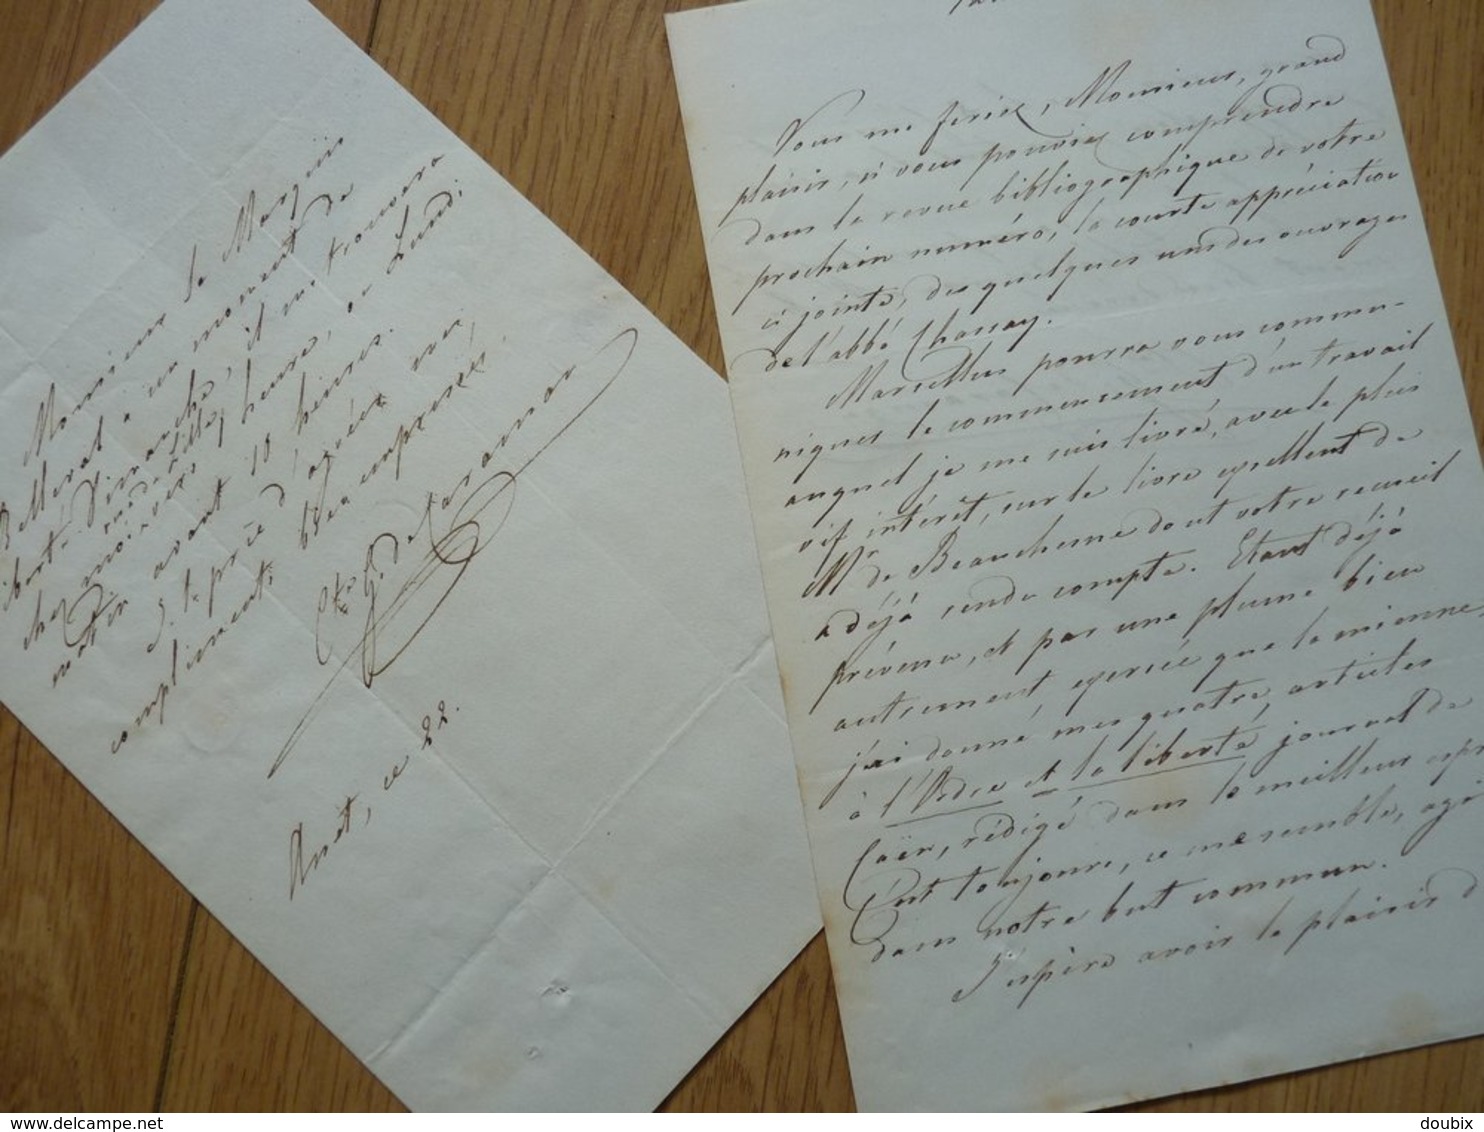 Monsieur le Marquis
Belleval a un moment de
liberté Dimanche, il me trouvera
chez moi à
rue de Lille,
vers heure, ou Lundi
matin avant 10 heures.
Je le prie d'agréer mes
compliments bien empressés.
Cte G. de Caraman
Anet, ce 22.
Vous me feriez, Monsieur, grand
plaisir, si vous pouviez comprendre
dans la revue bibliographique de votre
prochain numéro, la courte appréciation
ci jointe, des quelques uns des ouvrages
de l'abbé Chassay.
Marcellus pourra vous commu-
niquer le commencement d'un travail
auquel je me suis livré, avec le plus
vif intérêt, sur le livre excellent de
Mr de Beauchesne dont votre recueil
a déjà rendu compte. Etant déjà
prévenu, et par une plume bien
autrement exercée que la mienne
j'ai donné mes quatre articles
à l'Ordre et la liberté journal de
Caën, rédigé dans le meilleur esprit
C'est toujours, ce me semble, agir
dans notre but commun.
J'espère avoir le plaisir d
doubix